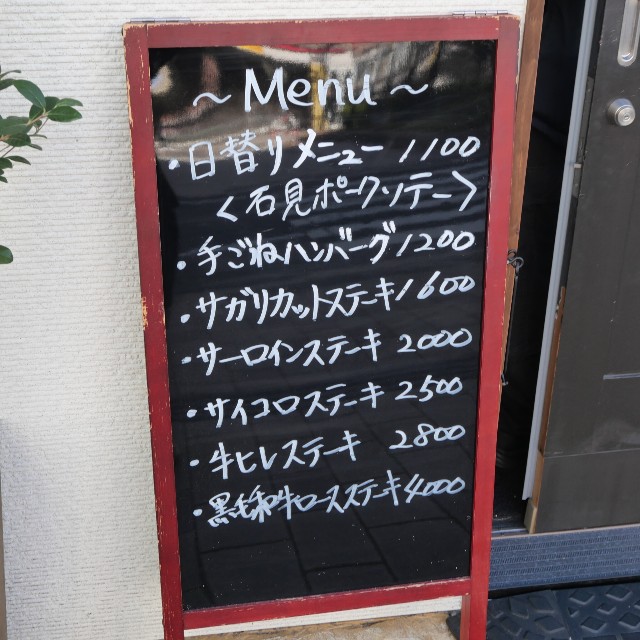 ～Menu～
・日替りメニュー 1100
＜石見ポークソテー＞
・手ごねハンバーグ 1200
・サガリカットステーキ 1600
・サーロインステーキ 2000
・サイコロステーキ 2500
・牛ヒレステーキ 2800
・黒毛和牛ロースステーキ 4000